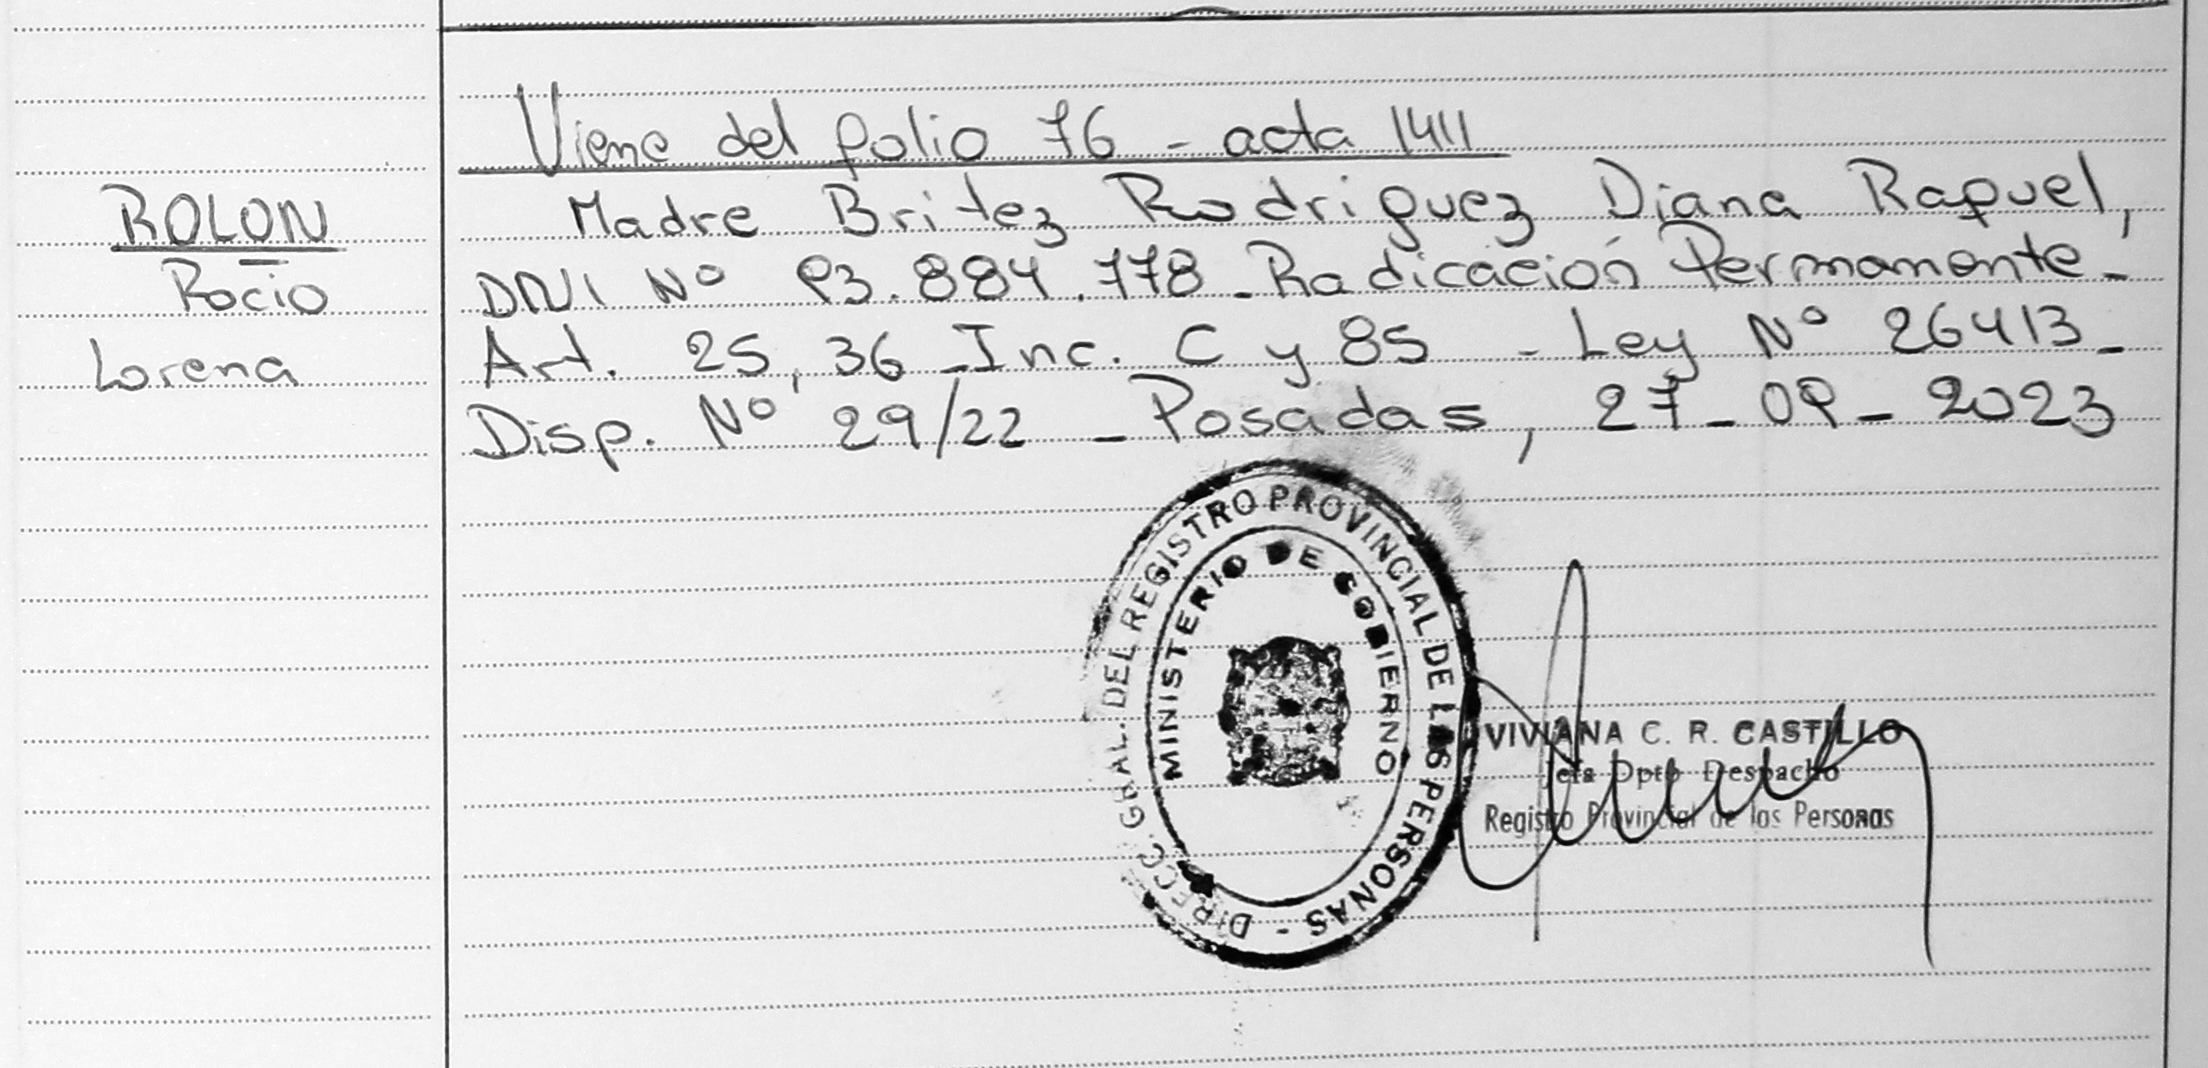 Viene del folio 76 - acta 1411
ROLON
Rocio
Lorena
Madre Britez Rodriguez Diana Raquel,
DNI Nº 93.884.778 - Radicación Permanente -
Art. 25, 36 - Inc. C y 85 - Ley Nº 26413 -
Disp. Nº 29/22 - Posadas, 27-09-2023
DIRECC. GRAL. DEL REGISTRO PROVINCIAL DE LAS PERSONAS -
MINISTERIO DE GOBIERNO
VIVIANA C. R. CASTILLO
Jefa Dpto Despacho
Registro Provincial de las Personas